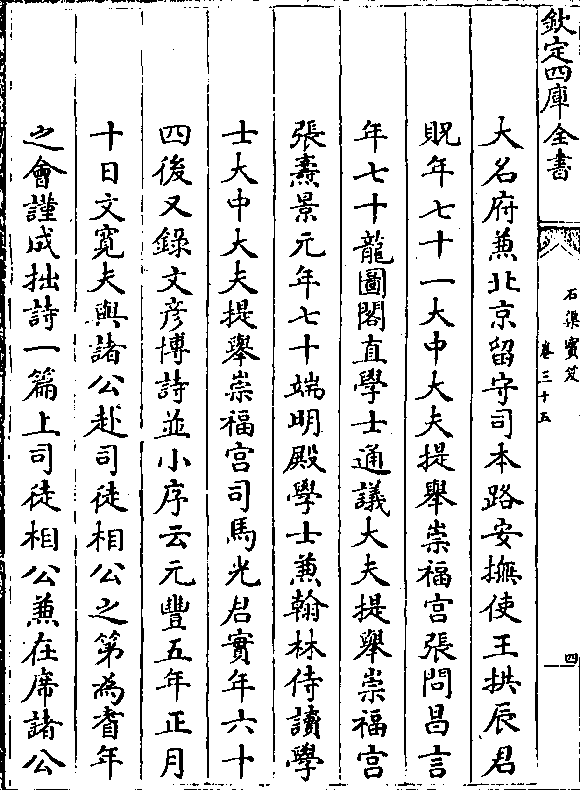 欽定四庫全書
石渠寶笈
卷三十五
四
大名府兼北京留守司本路安撫使王拱辰君
貺年七十一大中大夫提舉崇福宮張問昌言
年七十龍圖閣直學士通議大夫提舉崇福宮
張燾景元年七十端明殿學士兼翰林侍讀學
士大中大夫提舉崇福宮司馬光君實年六十
四後又錄文彥博詩並小序云元豐五年正月
十日文寬夫與諸公赴司徒相公之第為耆年
之會謹成拙詩一篇上司徒相公兼在席諸公